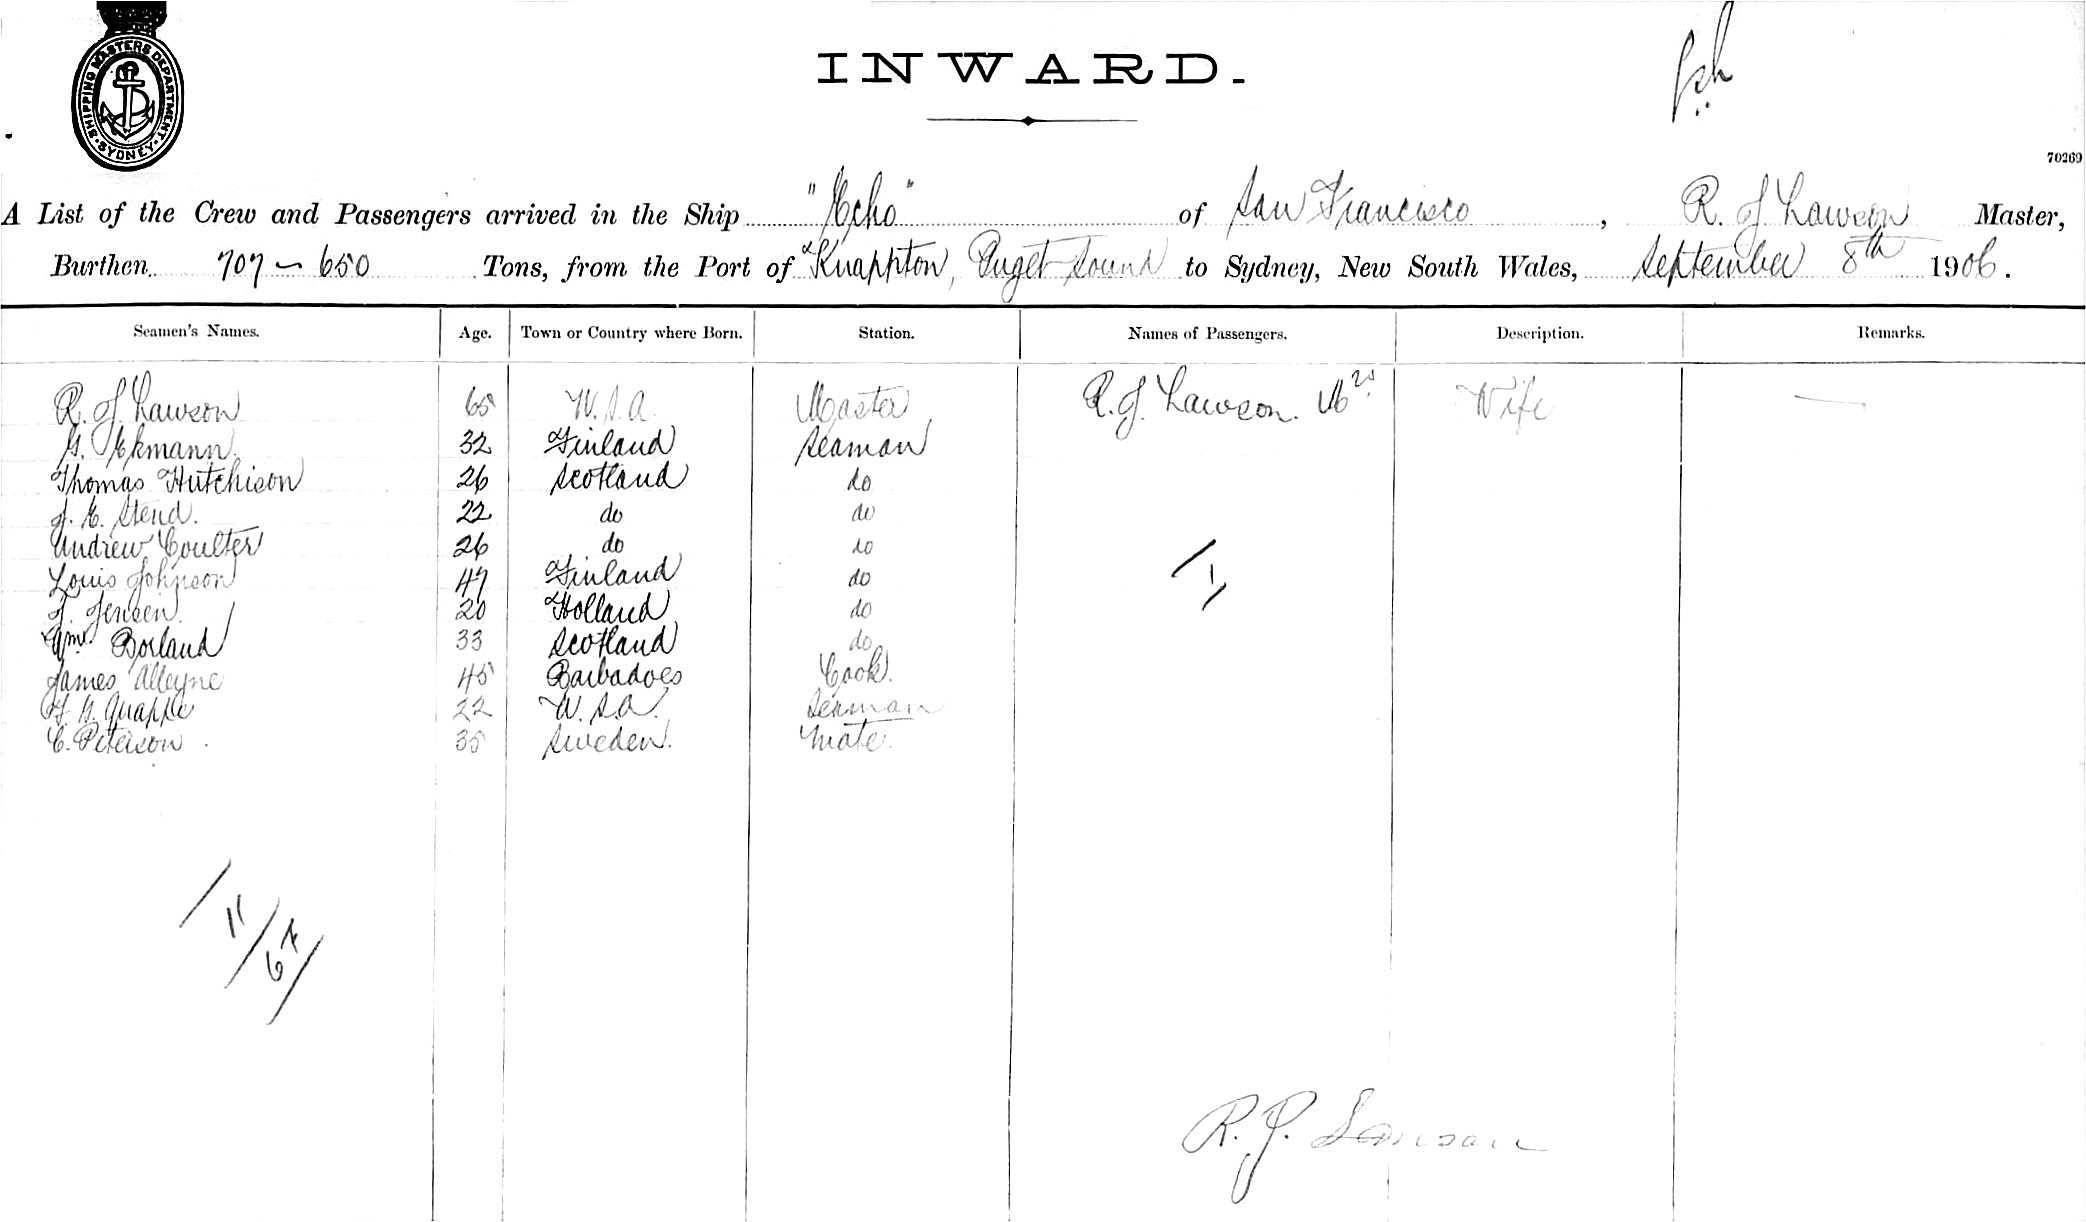 SHIPPING MASTERS DEPARTMENT
SYDNEY
INWARD.
70269
A List of the Crew and Passengers arrived in the Ship "Echo" of San Francisco, R. J. Lawson Master,
Burthen 707 - 650 Tons, from the Port of Knappton, Puget Sound to Sydney, New South Wales, September 8th 1906.
Seamen's Names. Age. Town or Country where Born. Station. Names of Passengers. Description. Remarks.
R. J. Lawson 65 U.S.A. Master R. J. Lawson. Mrs. Wife —
G. Ekmann. 32 Finland Seaman
Thomas Hutchison 26 Scotland do
J. E. Stend. 22 do do
Andrew Coulter 26 do do
Louis Johnson 47 Finland do
J. Jensen 20 Holland do
Wm. Borland 33 Scotland do
James Alleyne 45 Barbadoes Cook.
22 U.S.A. Seaman
C. Peterson 35 Sweden. Mate.
/1/
/11/67/
R. J. Lawson